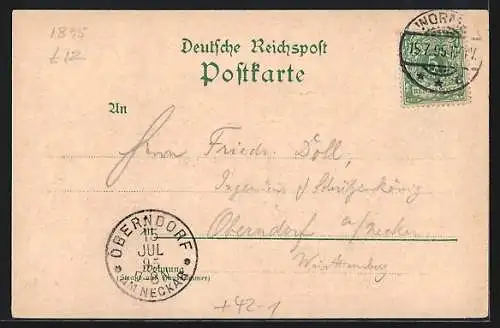 1895
£12
Deutsche Reichspost
Postkarte
WORMS
15.7.95
5
An
Herrn Friedr. Doll,
Ingenieur / Schützenkönig
Oberndorf a/Neckar
Württemberg
OBERNDORF
15
JUL
95
AM NECKAR
Wohnung
(Straße und Hausnummer)
+42-1